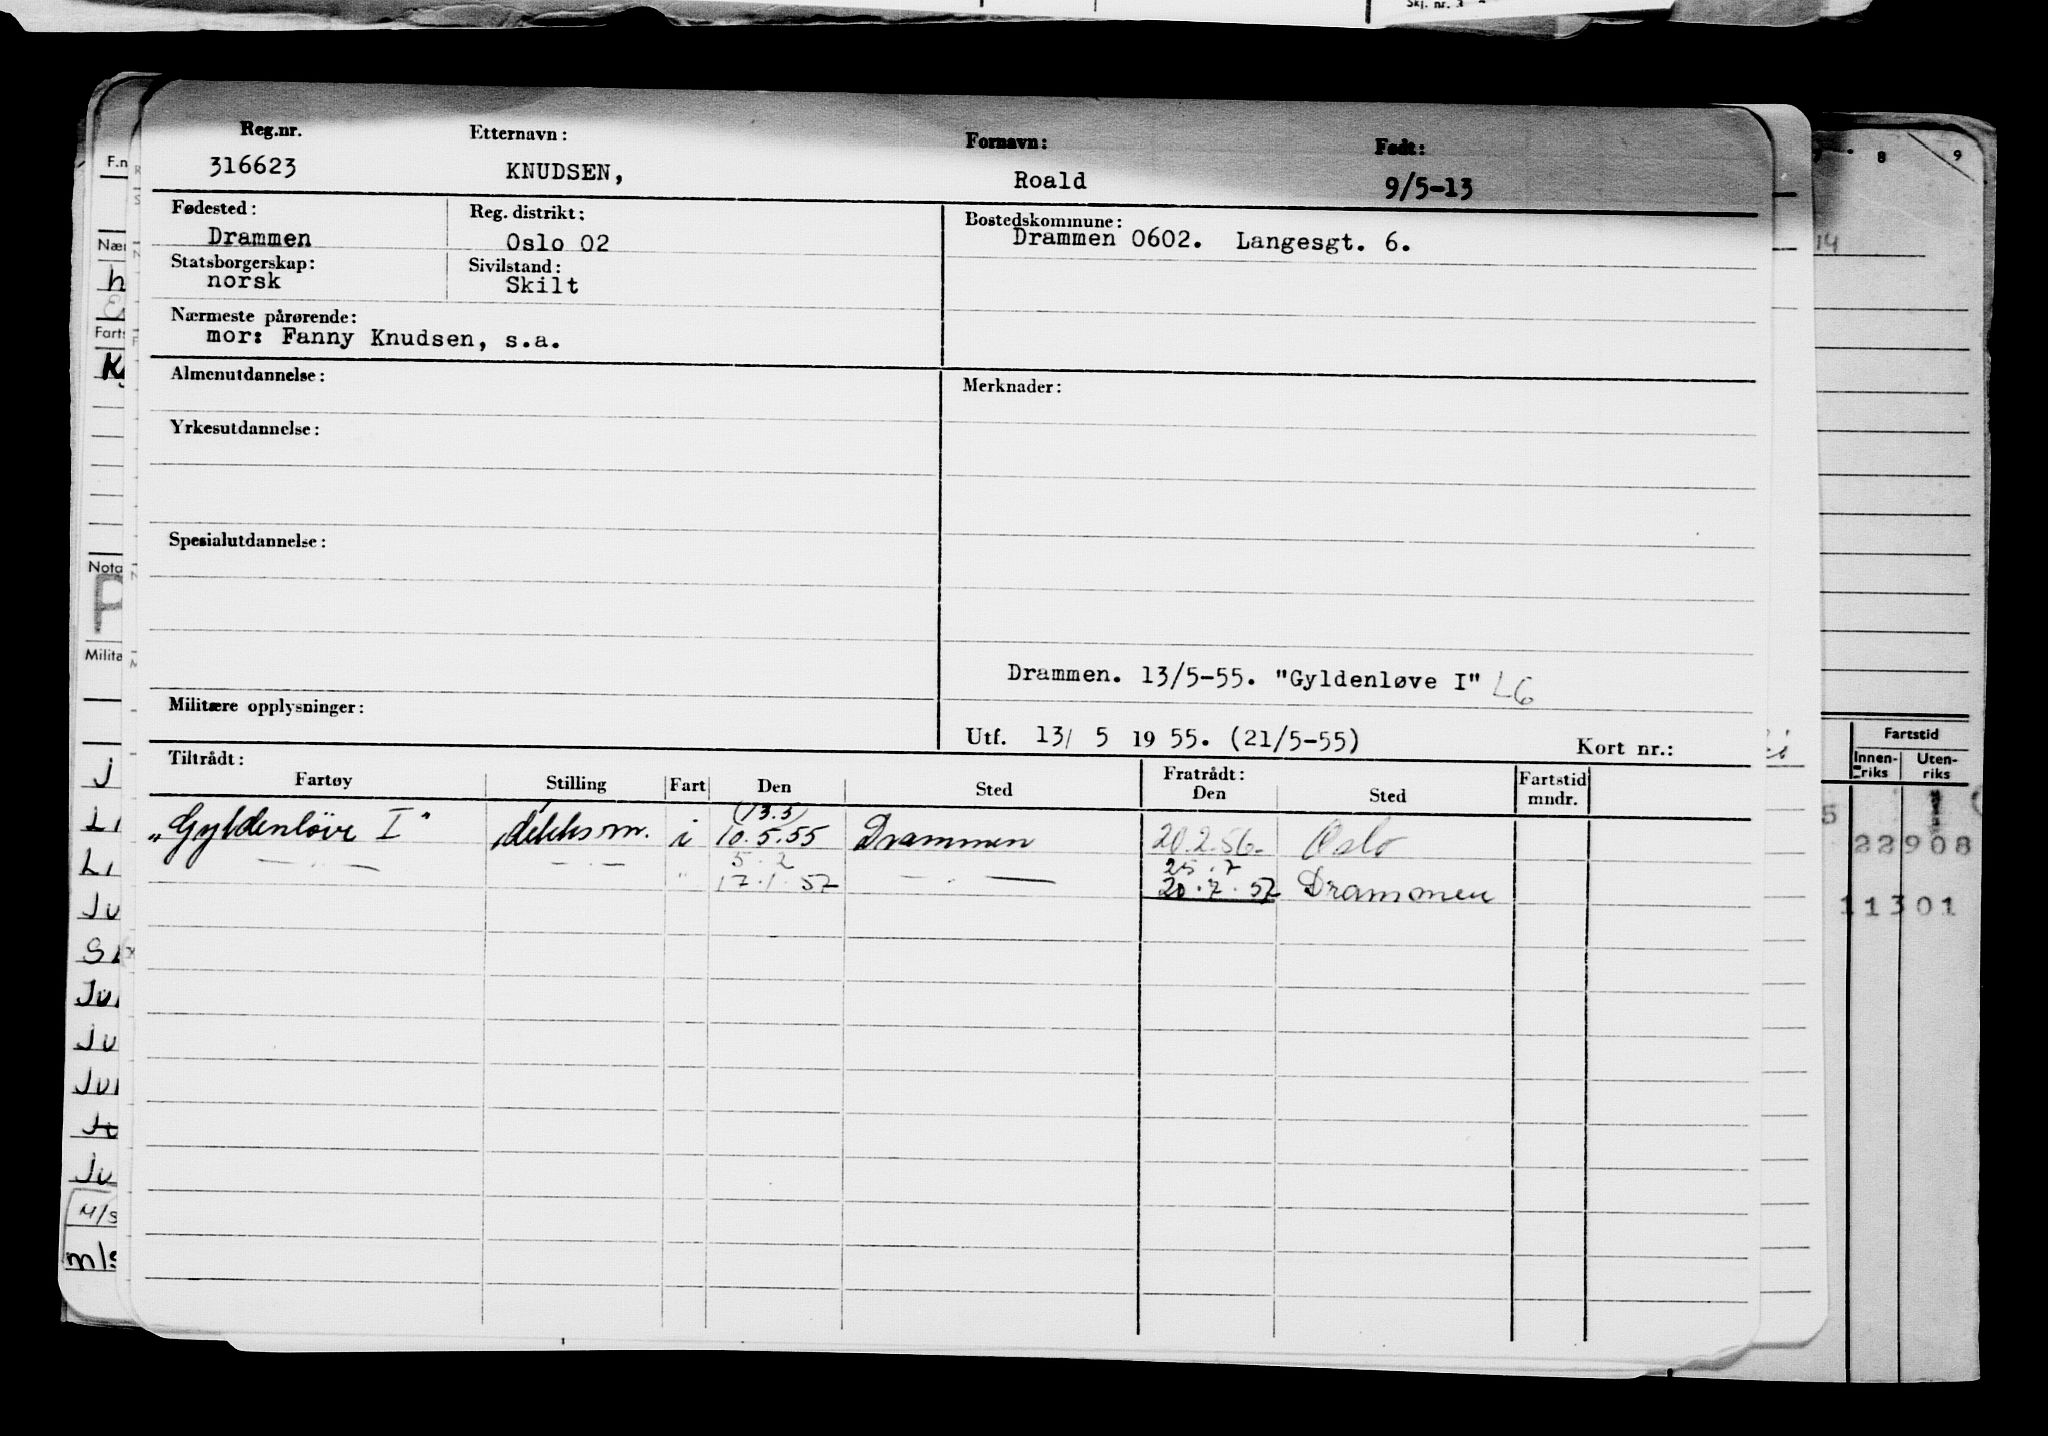 Skj. nr. 3
Reg.nr. Etternavn: Fornavn: Født:
316623 KNUDSEN, Roald 9/5-13
Fødested: Reg. distrikt: Bostedskommune:
Drammen Oslo 02 Drammen 0602. Langesgt. 6.
Statsborgerskap: Sivilstand:
norsk Skilt
Nærmeste pårørende:
mor: Fanny Knudsen, s.a.
Almenutdannelse: Merknader:
Yrkesutdannelse:
Spesialutdannelse:
Drammen. 13/5-55. "Gyldenløve I" LG
Militære opplysninger:
Utf. 13/ 5 19 55. (21/5-55) Kort nr.:
Tiltrådt: Fratrådt:
Fartøy Stilling Fart Den Sted Den Sted Fartstid mndr.
(13.5)
"Gyldenløve I" dekksm. i 10.5.55 Drammen 20.2.56. Oslo
5.2 25.7
— " — — " — " 17.1.57 — " — 20.7.57 Drammen
8 9
14
Fartstid
Innen-riks Uten-riks
5
22908
11301
F.n
Nær
Farts
Nota
Milita